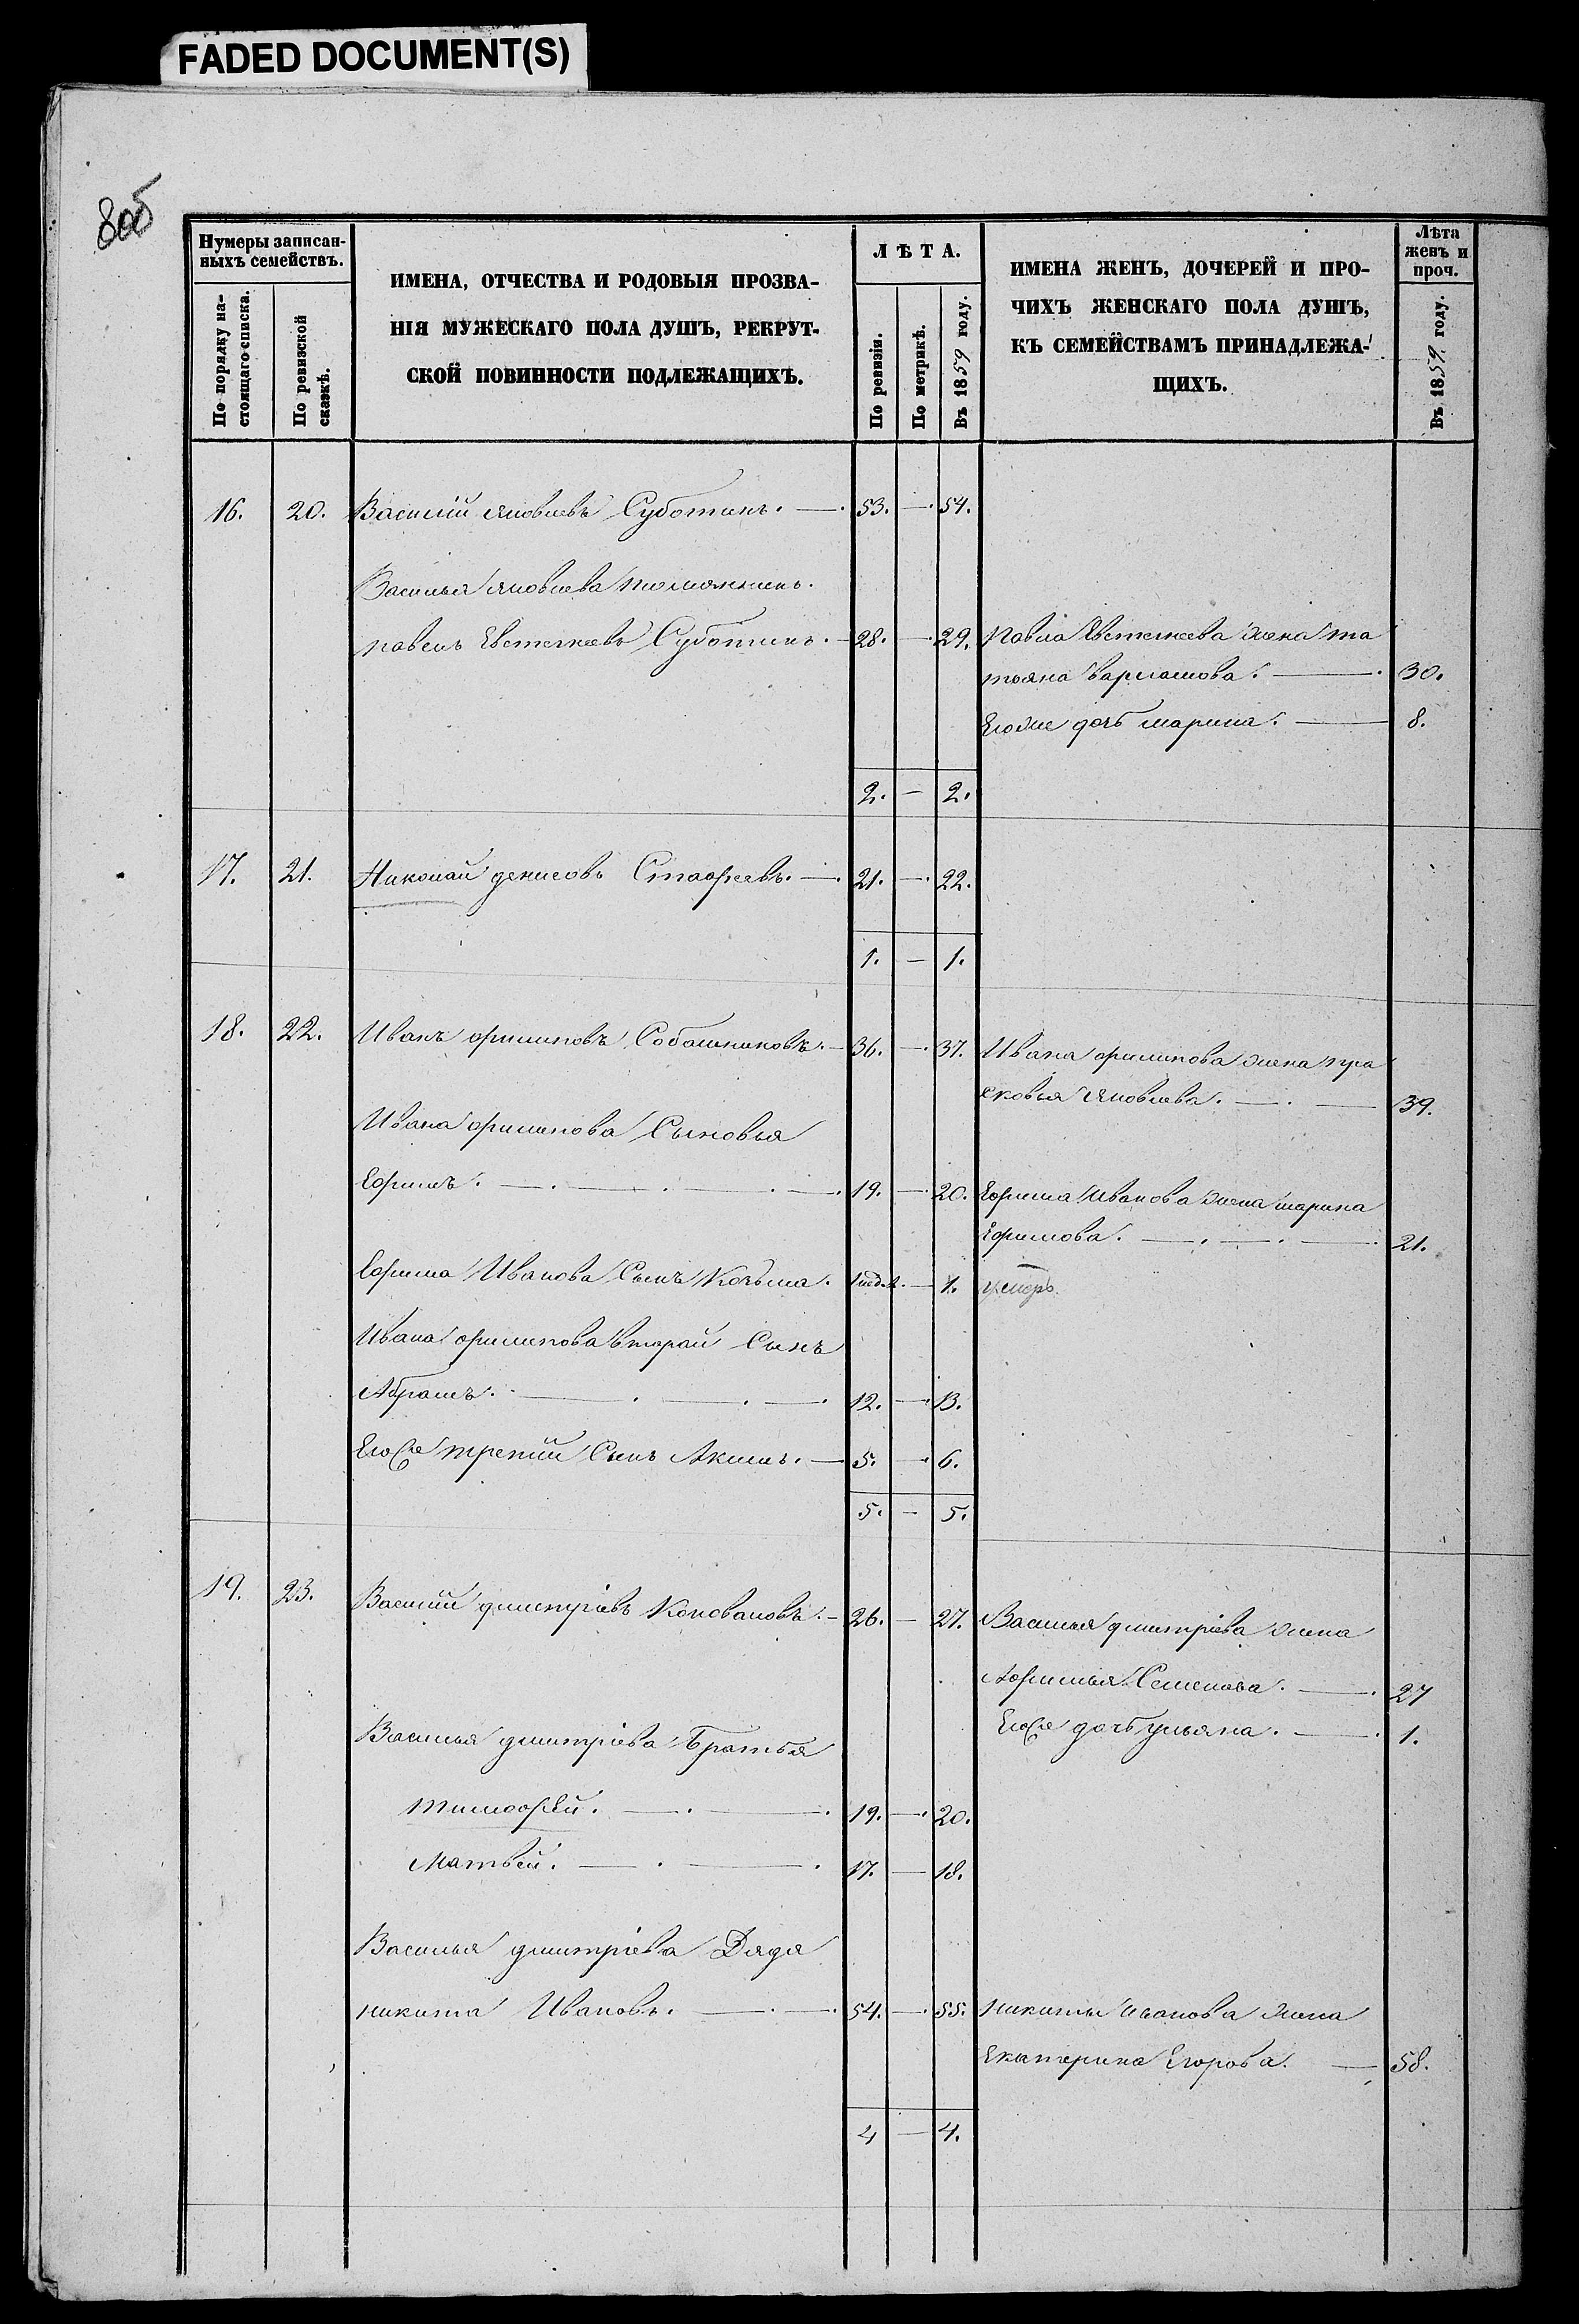 FADED DOCUMENT(S)
80об
Нумеры записан-
ныхъ семействъ.
По порядку на-
стоящаго списка.
По ревизской
сказкѣ.
ИМЕНА, ОТЧЕСТВА И РОДОВЫЯ ПРОЗВА-
НІЯ МУЖЕСКАГО ПОЛА ДУШЪ, РЕКРУТ-
СКОЙ ПОВИННОСТИ ПОДЛЕЖАЩИХЪ.
ЛѢТА.
По ревизіи.
По метрикѣ.
Въ 1859 году.
ИМЕНА ЖЕНЪ, ДОЧЕРЕЙ И ПРО-
ЧИХЪ ЖЕНСКАГО ПОЛА ДУШЪ,
КЪ СЕМЕЙСТВАМЪ ПРИНАДЛЕЖА-
ЩИХЪ.
Лѣта
женъ и
проч.
Въ 1859 году.
16. 20. Василій яковлевъ Суботинъ. — 53. — 54.
Василья яковлева
павелъ Евстегнеевъ Суботинъ. — 28. — 29. Павла Евстегнеева жена та
тьяна варламова. — 30.
Егоже дочь марина. — 8.
2. — 2.
17. 21. Николай денисовъ Стафеевъ. — 21. — 22.
1. — 1.
18. 22. Иванъ филиповъ Собашниковъ. — 36. — 37. Ивана филипова жена пра
сковья яковлева. — 39.
Ивана филипова Сыновья
Ефимъ. — 19. — 20. Ефима Иванова жена марина
Ефимова. — 21.
Ефима Иванова Сынъ Козьма. 1 нед. — 1.
Ивана филипова вторай Сынъ
Абрамъ. — 12. — 13.
Егоже третій Сынъ Акимъ. — 5. — 6.
5. — 5.
19. 23. Василій дмитріевъ Коноваловъ. — 26. — 27. Василья дмитріева жена
Афимья Семенова. — 27
Егоже дочь ульяна. — 1.
Василья дмитріева Братья
тимофей. — 19. — 20.
Матвей. — 17. — 18.
Василья дмитріева Дядя
никита Ивановъ. — 54. — 55. никиты иванова жена
Екатерина Егорова. — 58.
4 — 4.